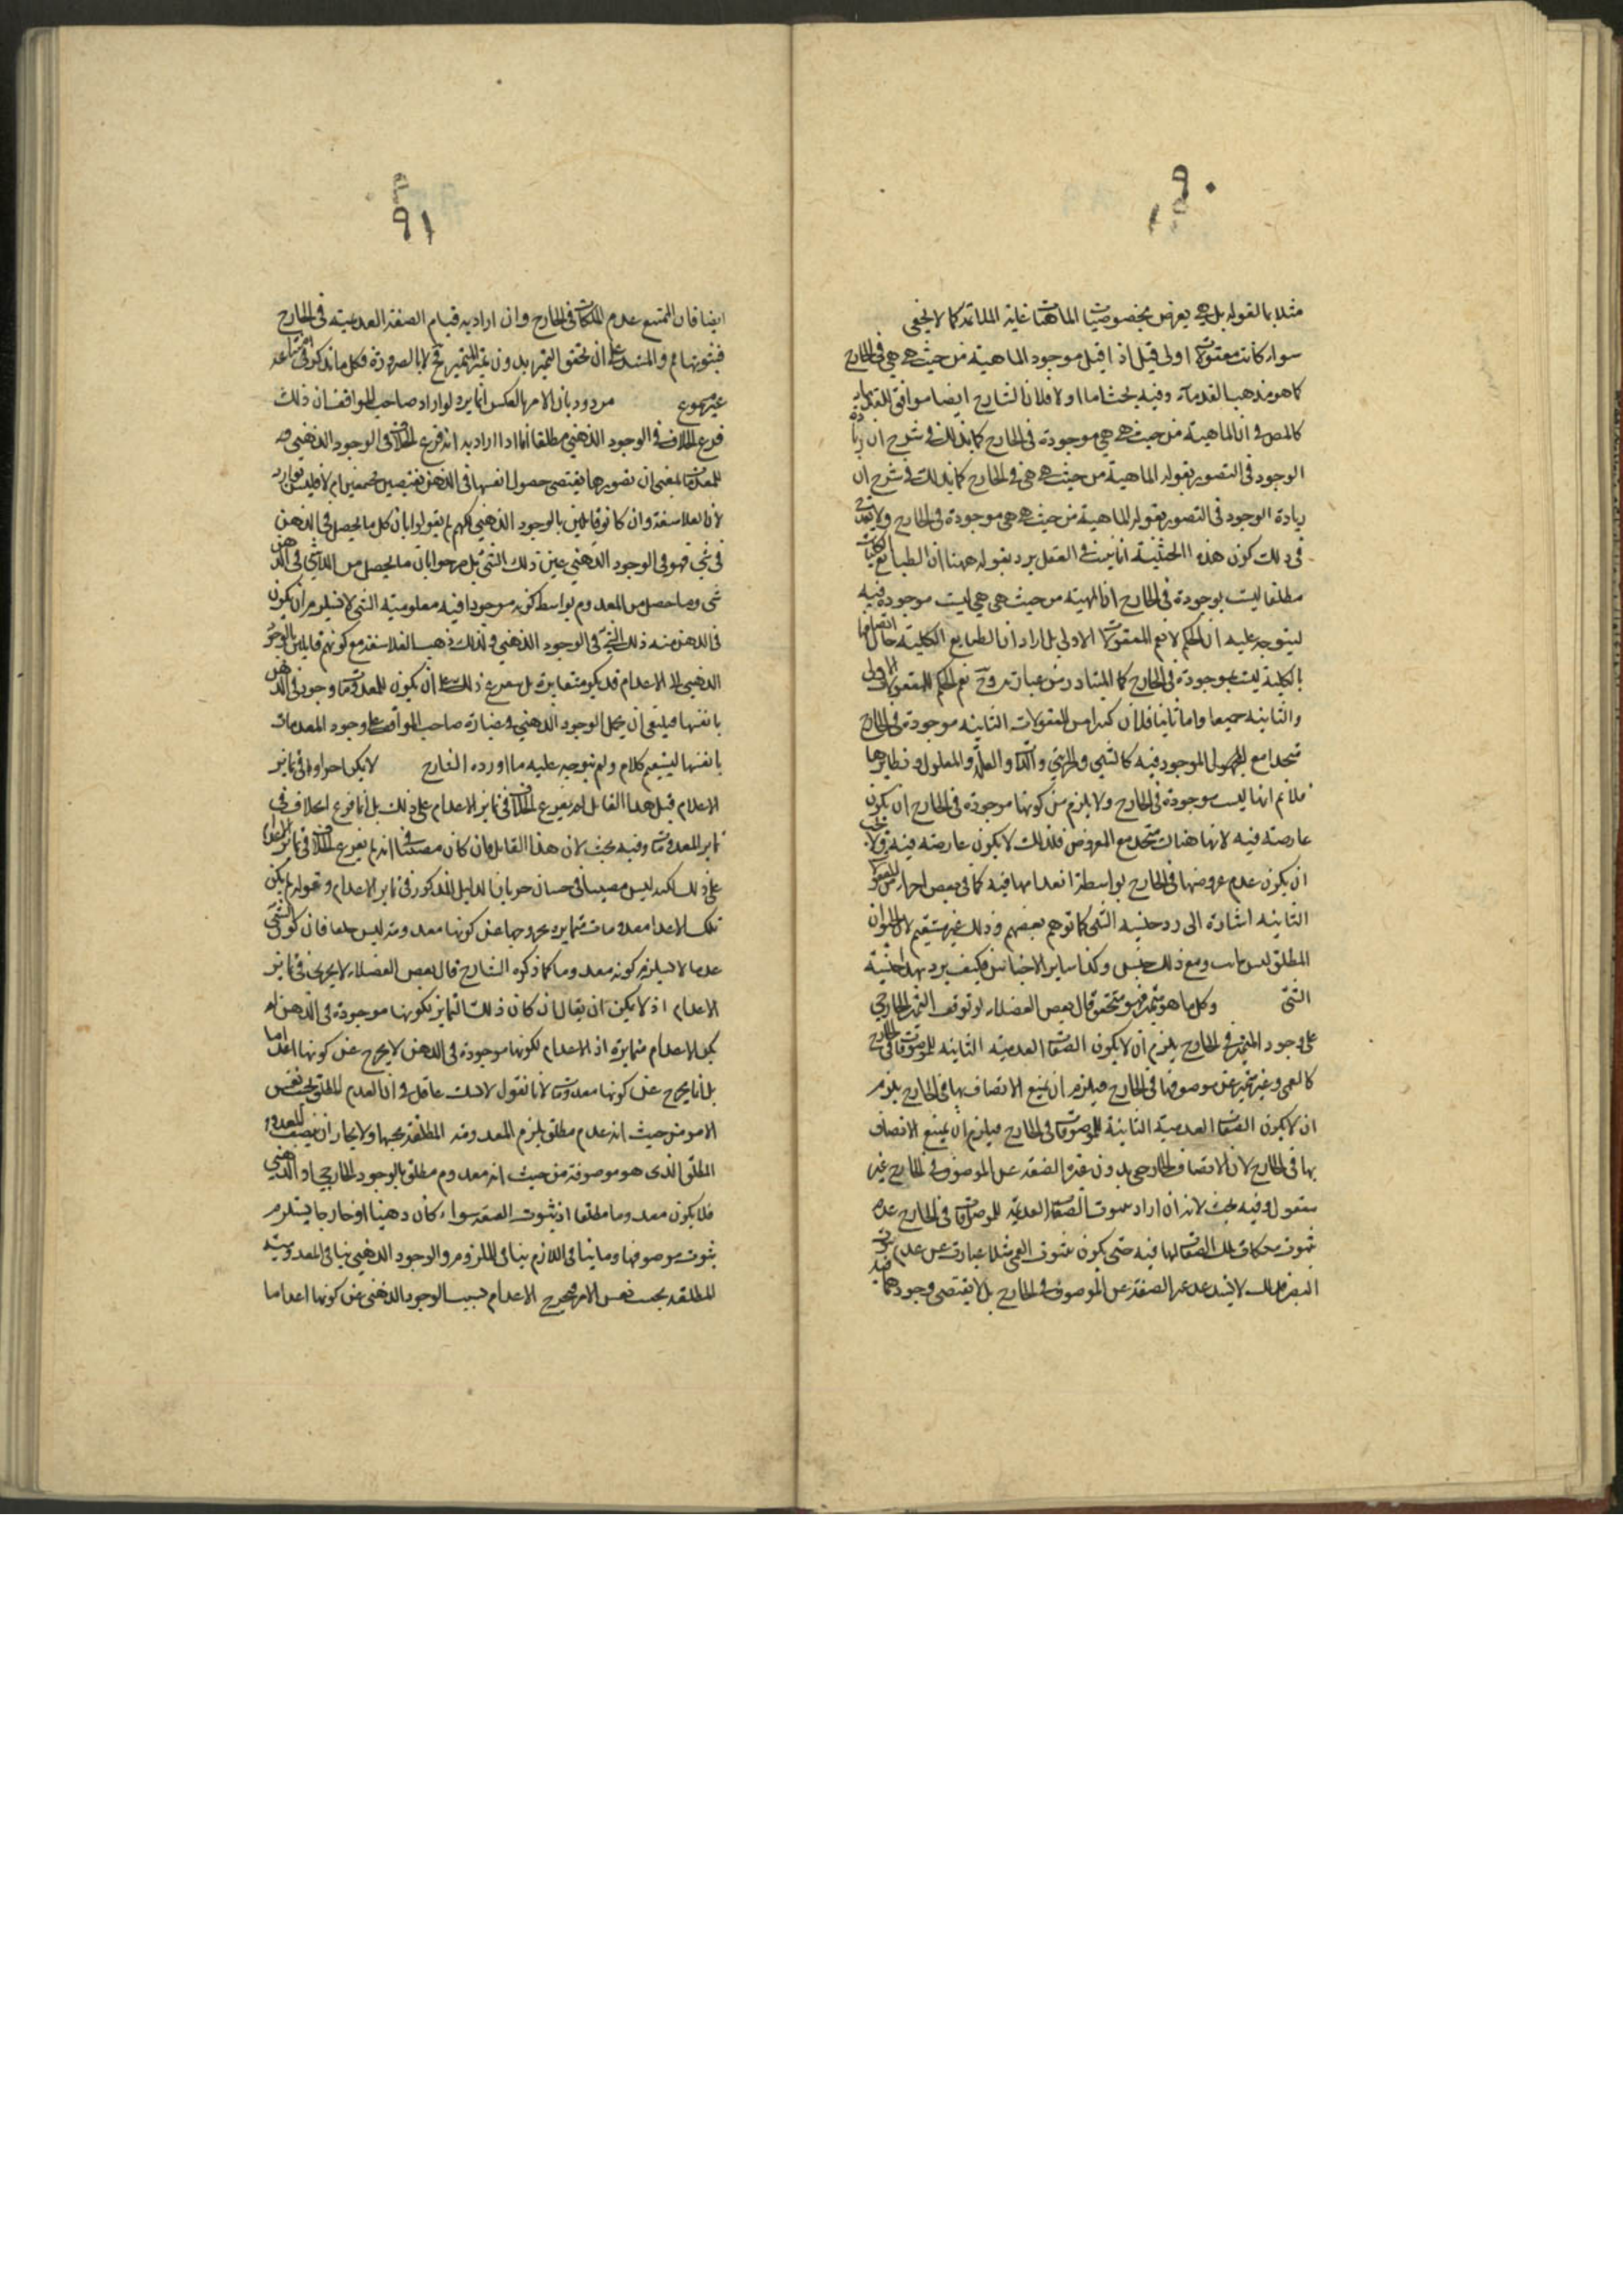 ٩٠
مثلا بالقوله بل هي يعرض بخصوصيات الماهيات غاية الملائمة كما لا يخفى
سواء كانت معقولات اولى قيل اذا قيل موجود الماهية من حيث هي هي في الخارج
كما هو مذهب القدماء وفيه بحث اما اولا فلان الشارح ايضا موافق القدماء
كالمص في ان الماهية من حيث هي هي موجودة في الخارج كما بذلك في شرح ان زيادة
الوجود في التصور بقوله الماهية من حيث هي هي في الخارج كما بذلك في شرح ان
زيادة الوجود في التصور بقوله الماهية من حيث هي هي موجودة في الخارج ولا
في ذلك كون هذه الحيثية انما يثبت في العقل يرد بقوله ههنا ان الطبايع
مطلقا ليست بموجودة في الخارج ان المهية من حيث هي هي ليست موجودة فيه
ليتوجه عليه ان الحكم لا يعم المعقولات الاولى بل اراد ان الطبايع الكلية حال اتصافها
بالكلية ليست بموجودة في الخارج كما المتبادر من عبارته وح يعم الحكم المعقولات الاولى
والثانية جميعا واما ثانيا فلان كثيرا من المعقولات الثانية موجودة في الخارج
متحدا مع المحمول الموجود فيه كالشيء والجزئي والذاتي والعلة والمعلول ونظايرها
فلا نم انها ليست موجودة في الخارج ولا يلزم من كونها موجودة في الخارج ان يكون
عارضة فيه لانها هناك متحد مع المعروض فلذلك لا يكون عارضة فيه ولا يجب
ان يكون عدم عروضها في الخارج بواسطة انعدامها فيه كما في بعض اجزاء
الثانية اشارة الى رد جنسية الشيء كما توهم بعضهم وذلك غير مستقيم لان الحيوان
المطلق ليس بثابت ومع ذلك جنس وكذا ساير الاجناس فكيف يرد بهذا جنسية
الشيء وكل ما هو متميز فهو متحقق قال بعض الفضلاء لو توقف التميز الخارجي
على وجود المتميز في الخارج يلزم ان لا يكون الصفات العدمية الثابتة للموصوفات في الخارج
كالعمى وغير متميز عن موصوفها في الخارج فيلزم ان يمتنع الاتصاف بها في الخارج يلزم
ان لا يكون الصفات العدمية الثابتة للموصوفات في الخارج فيلزم ان يمتنع الاتصاف
بها في الخارج لان الاتصاف الخارجي بدون تميز الصفة عن الموصوف في الخارج غير
معقول وفيه بحث لانه ان اراد بثبوت الصفات العدمية للموصوفات في الخارج عدم
ثبوت ملكات تلك الصفات لها فيه حتى يكون ثبوت العمى مثلا عبارت عن عدم ثبوت
البصر فذلك لا يستدعي تميز الصفة عن الموصوف في الخارج بل لا يقتضي وجودهما فيه
٩١
ايضا فان الممتنع عدم الملكات في الخارج وان اراد به قيام الصفة العدمية في الخارج
فثبوتها مم والمستند على ان تحقق التميز بدون تميز المتميز مح لا بالضرورة وكل ما يذكر في
غير مسموع مردود بان الامر بالعكس انما يرد لو اراد صاحب المواقف ان ذلك
فرع الخلاف في الوجود الذهني مطلقا اما اذا اراد به انه فرع الخلاف في الوجود الذهني
للمعدومات بمعنى ان تصورها يقتضي حصول انفسها في الذهن ام لا فليس بوارد
لان الفلاسفة وان كانوا قايلين بالوجود الذهني لكنهم لم يقولوا بان كل ما يحصل في الذهن
من شيء فهو في الوجود الذهني عين ذلك الشيء بل صرحوا بان ما يحصل من الذاتي في الذهن
شيء وما حصل من المعدوم بواسطة كونه موجودا فيه معلومية الشيء لا يستلزم ان يكون
في الذهن منه ذلك الشيء في الوجود الذهني ولذلك ذهب الفلاسفة مع كونهم قايلين بالوجود
الذهني الى الاعدام قد يكون متمايزة بل يتفرع ذلك على ان يكون للمعدومات وجود في الذهن
بانفسها فينبغي ان يحمل الوجود الذهني في عبارة صاحب المواقف على وجود المعدومات
بانفسها ليستقيم كلامه ولم يتوجه عليه ما اورده الشارح لا يمكن اجراؤه في تمايز
الاعدام قيل هذا القايل لم يفرع الخلاف في تمايز الاعدام على ذلك بل انما فرع الخلاف في
تمايز المعدومات وفيه بحث لان هذا القايل وان كان مصيبا في انه لم يفرع الخلاف في تمايز الاعدام
على ذلك لكنه ليس مصيبا في حسبان جريان الدليل المذكور في تمايز الاعدام وقوله لم يكن
تلك الاعدام معدومات متمايزة بخروجها عن كونها معدومة ليس حقا فان كون الشيء
عدما لا يستلزم كونه معدوما كما ذكره الشارح قال بعض الفضلاء لا يجري في تمايز
الاعدام اذ لا يمكن ان يقال ان كان ذلك التمايز لكونها موجودة في الذهن لم
يكن الاعدام متمايزة اذ الاعدام لكونها موجودة في الذهن لا يخرج عن كونها اعداما
بل انما يخرج عن كونها معدومات لانا نقول لا شك عاقل في ان العدم المطلق بحسب نفس
الامر من حيث انه عدم مطلق يلزم المعدومة المطلقة بحسبها ولا يجاز ان يتصف المعدوم
المطلق الذي هو موصوفة من حيث انه معدوم مطلق بالوجود الخارجي او الذهني
فلا يكون معدوما مطلقا اذ ثبوت الصفة سواء كان ذهنيا او خارجيا يستلزم
ثبوت موصوفها وما ينافي اللازم ينافي الملزوم والوجود الذهني ينافي المعدومية
المطلقة بحسب نفس الامر فيخرج الاعدام بسبب الوجود الذهني عن كونها اعداما